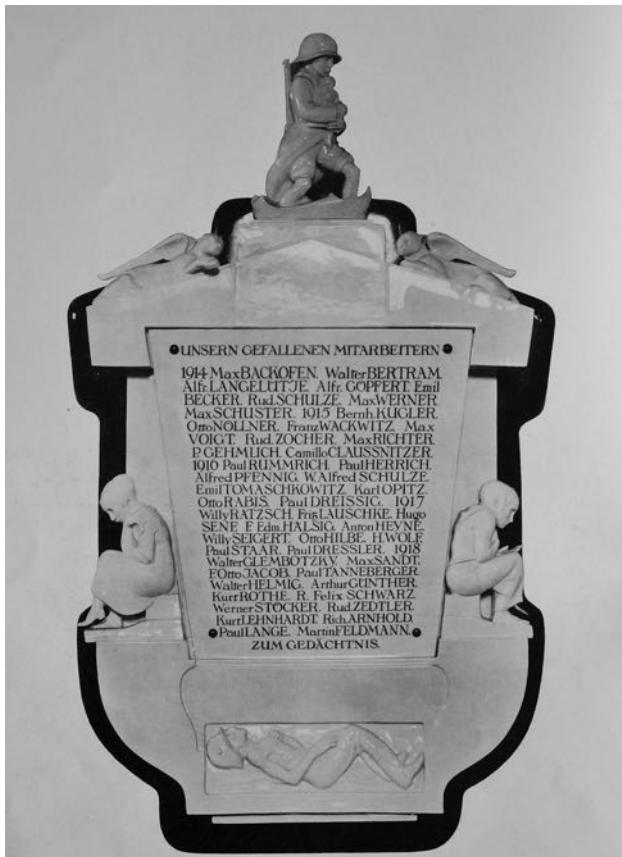 UNSERN GEFALLENEN MITARBEITERN
1914 Max BACKOFEN. Walter BERTRAM.
Alfr. LANGELÜTJE. Alfr. GÖPFERT. Emil
BECKER. Rud. SCHULZE. Max WERNER
Max SCHUSTER. 1915 Bernh. KUGLER.
Otto NÖLLNER. Franz WACKWITZ. Max
VOIGT. Rud. ZOCHER. Max RICHTER
P. GEHMLICH. Camillo CLAUSSNITZER.
1916 Paul RUMMRICH. Paul HERRICH.
Alfred PFENNIG. W. Alfred SCHULZE.
Emil TOMASCHKOWITZ. Karl OPITZ.
Otto RABIS. Paul DREISSIG. 1917
Willy RATZSCH. Fritz LAUSCHKE. Hugo
SENE. F. Edm. HALSIG. Anton HEYNE.
Willy SEIGERT. Otto HILBE. H. WOLF.
Paul STAAR. Paul DRESSLER. 1918
Walter GLEMBOTZKY. Max SANDT.
F. Otto JACOB. Paul TANNEBERGER.
Walter HELMIG. Arthur GÜNTHER.
Kurt ROTHE. R. Felix SCHWARZ
Werner STÖCKER. Rud. ZEDTLER.
Kurt LEHNHARDT. Rich. ARNHOLD.
Paul LANGE. Martin FELDMANN.
ZUM GEDÄCHTNIS.